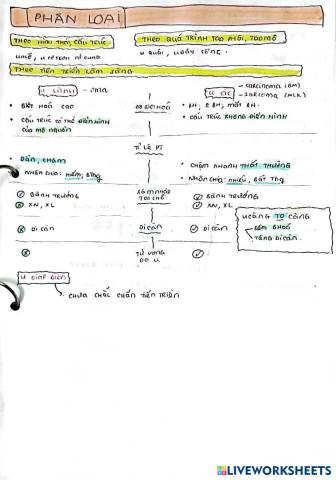 PHÂN LOẠI
THEO HÌNH THÁI, CẤU TRÚC
THEO QUÁ TRÌNH TẠO PHÔI, TẠO MÔ
THEO TIẾN TRIỂN LÂM SÀNG
U LÀNH - oma
U ÁC - carcinoma (BM)
- sarcoma (MLK)
• BIỆT HOÁ CAO
BIỆT HOÁ
• CẤU TRÚC KHÔNG ĐIỂN HÌNH
CỦA MÔ NGUỒN
TỈ LỆ PT
• DẦN, CHẬM
• CHẬM NHANH THẤT THƯỜNG
• NHÂN CHIA: HIẾM,
• NHÂN CHIA: NHIỀU, BẤT THG
BÀNH TRƯỚNG
XÂM NHẬP
TẠI CHỖ
BÀNH TRƯỚNG
XN, XL
XN, XL
U CÀNG TO CÀNG
TĂNG DI CĂN
DI CĂN
DI CĂN
DI CĂN
TỬ VONG
DO U
U GIÁP BIÊN
CHƯA CHẮC CHẮN TIẾN TRIỂN
LIVEWORKSHEETS